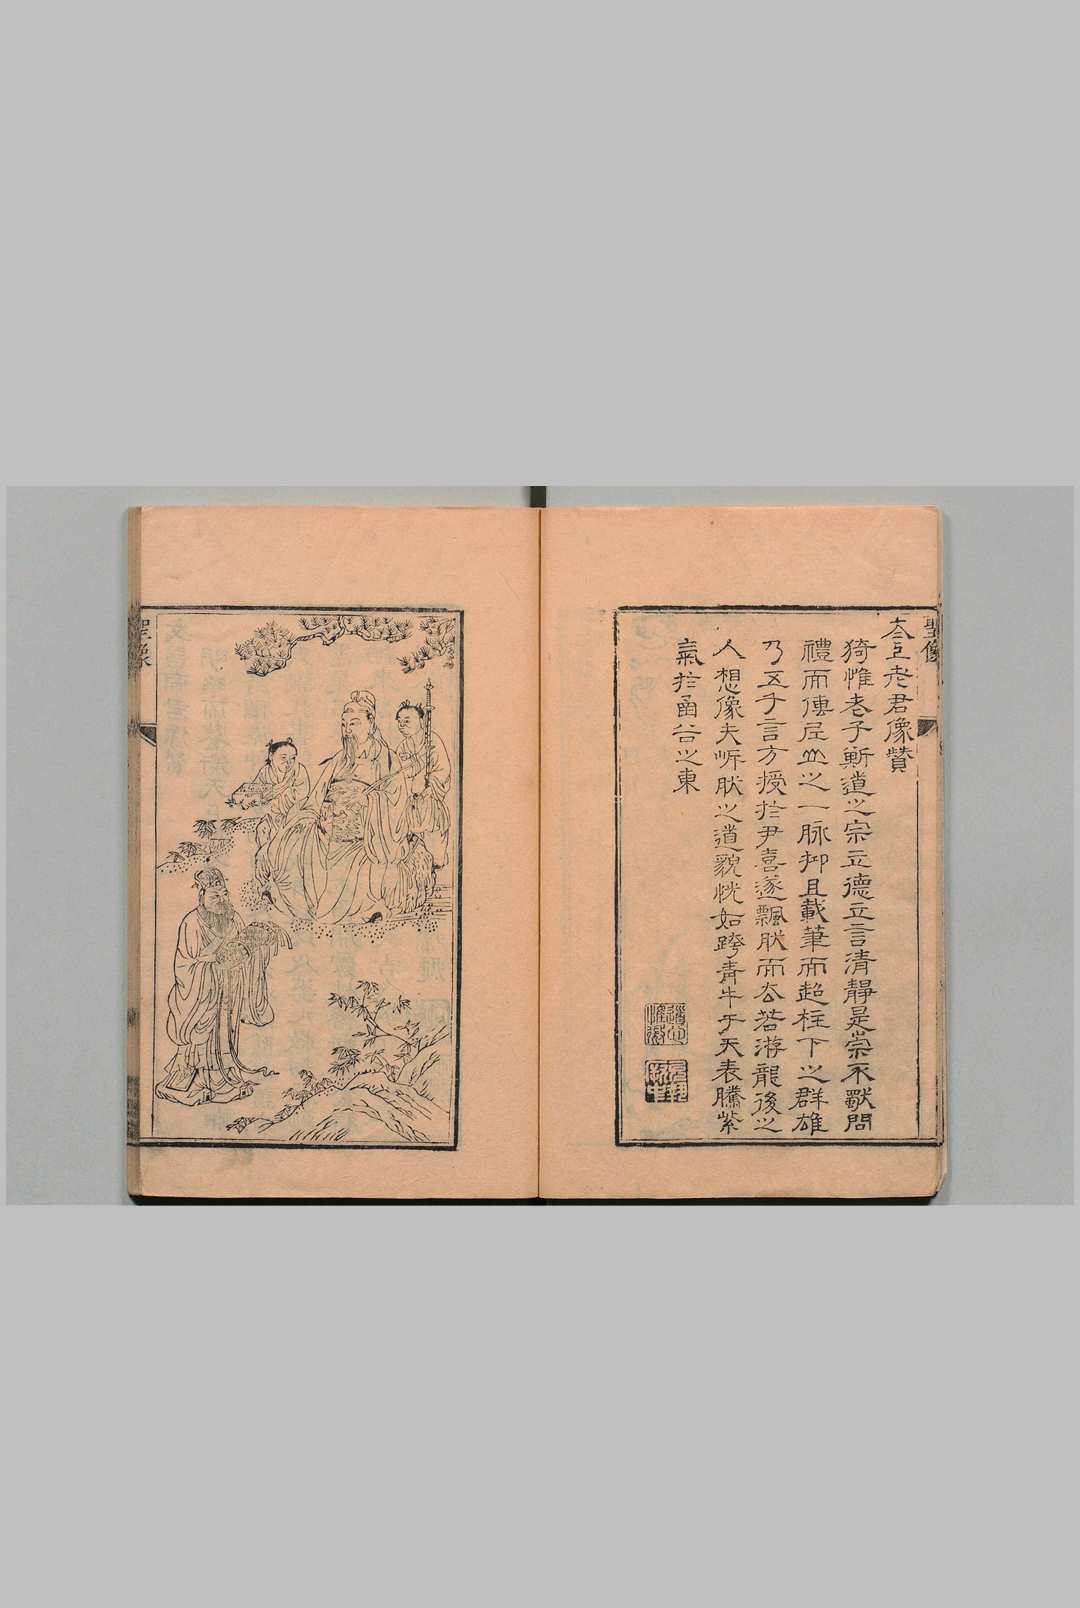 聖像
太上老君像贊
猗惟老子斯道之宗立德立言清靜是崇不厭問
禮而傳尼山之一脉抑且載筆而超柱下之群雄
乃五千言方授於尹喜遂飄然而去若游龍後之
人想像夫訢然之道貌恍如跨青牛于天表騰紫
氣於函谷之東
聖像